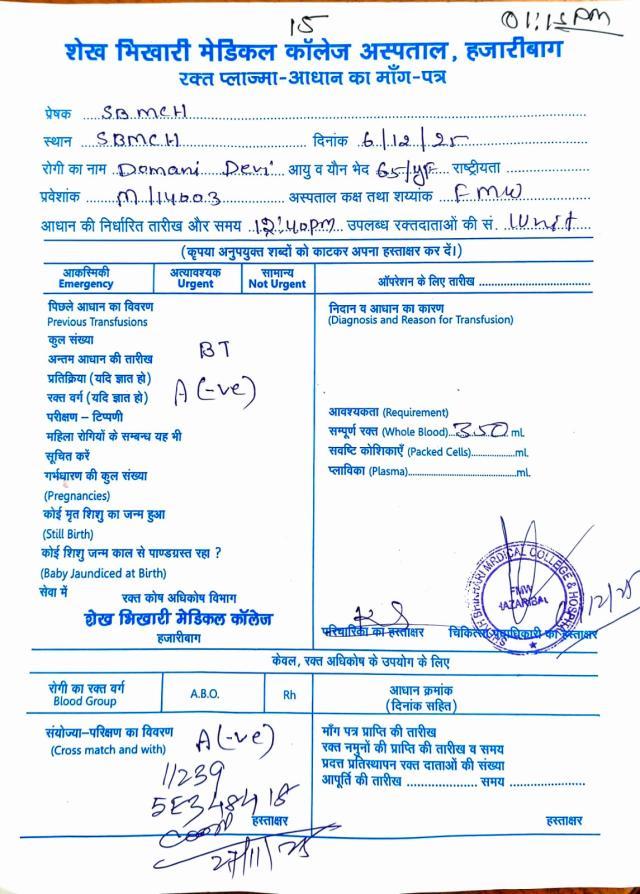 15
01:15PM
शेख भिखारी मेडिकल कॉलेज अस्पताल, हजारीबाग
रक्त प्लाज्मा-आधान का माँग-पत्र
प्रेषक SBMCH
स्थान SBMCH दिनांक 6/12/25
रोगी का नाम Domani Devi आयु व यौन भेद 65/yF राष्ट्रीयता
प्रवेशांक M/14003 अस्पताल कक्ष तथा शय्यांक FMW
आधान की निर्धारित तारीख और समय 12:40pm उपलब्ध रक्तदाताओं की सं. 1Unit
(कृपया अनुपयुक्त शब्दों को काटकर अपना हस्ताक्षर कर दें।)
आकस्मिकी अत्यावश्यक सामान्य
Emergency Urgent Not Urgent
ऑपरेशन के लिए तारीख
पिछले आधान का विवरण
Previous Transfusions
कुल संख्या
BT
अन्तम आधान की तारीख
प्रतिक्रिया (यदि ज्ञात हो)
रक्त वर्ग (यदि ज्ञात हो) A(-ve)
परीक्षण – टिप्पणी
महिला रोगियों के सम्बन्ध यह भी
सूचित करें
गर्भधारण की कुल संख्या
(Pregnancies)
कोई मृत शिशु का जन्म हुआ
(Still Birth)
कोई शिशु जन्म काल से पाण्डग्रस्त रहा ?
(Baby Jaundiced at Birth)
सेवा में
रक्त कोष अधिकोष विभाग
शेख भिखारी मेडिकल कॉलेज
हजारीबाग
निदान व आधान का कारण
(Diagnosis and Reason for Transfusion)
आवश्यकता (Requirement)
सम्पूर्ण रक्त (Whole Blood) 350 ml.
सवष्टि कोशिकाएँ (Packed Cells) ml.
प्लाविका (Plasma) ml.
SHEIKH BHIKHARI MRDICAL COLLEGE & HOSPITAL
FMW
HAZARIBAG
/12/25
परिचारिका का हस्ताक्षर चिकित्सा पदाधिकारी का हस्ताक्षर
केवल, रक्त अधिकोष के उपयोग के लिए
रोगी का रक्त वर्ग
Blood Group
A.B.O.
Rh
आधान क्रमांक
(दिनांक सहित)
संयोज्या-परिक्षण का विवरण
(Cross match and with)
A(-ve)
11239
5E348418
हस्ताक्षर
27/11/25
माँग पत्र प्राप्ति की तारीख
रक्त नमुनों की प्राप्ति की तारीख व समय
प्रदत्त प्रतिस्थापन रक्त दाताओं की संख्या
आपूर्ति की तारीख समय
हस्ताक्षर